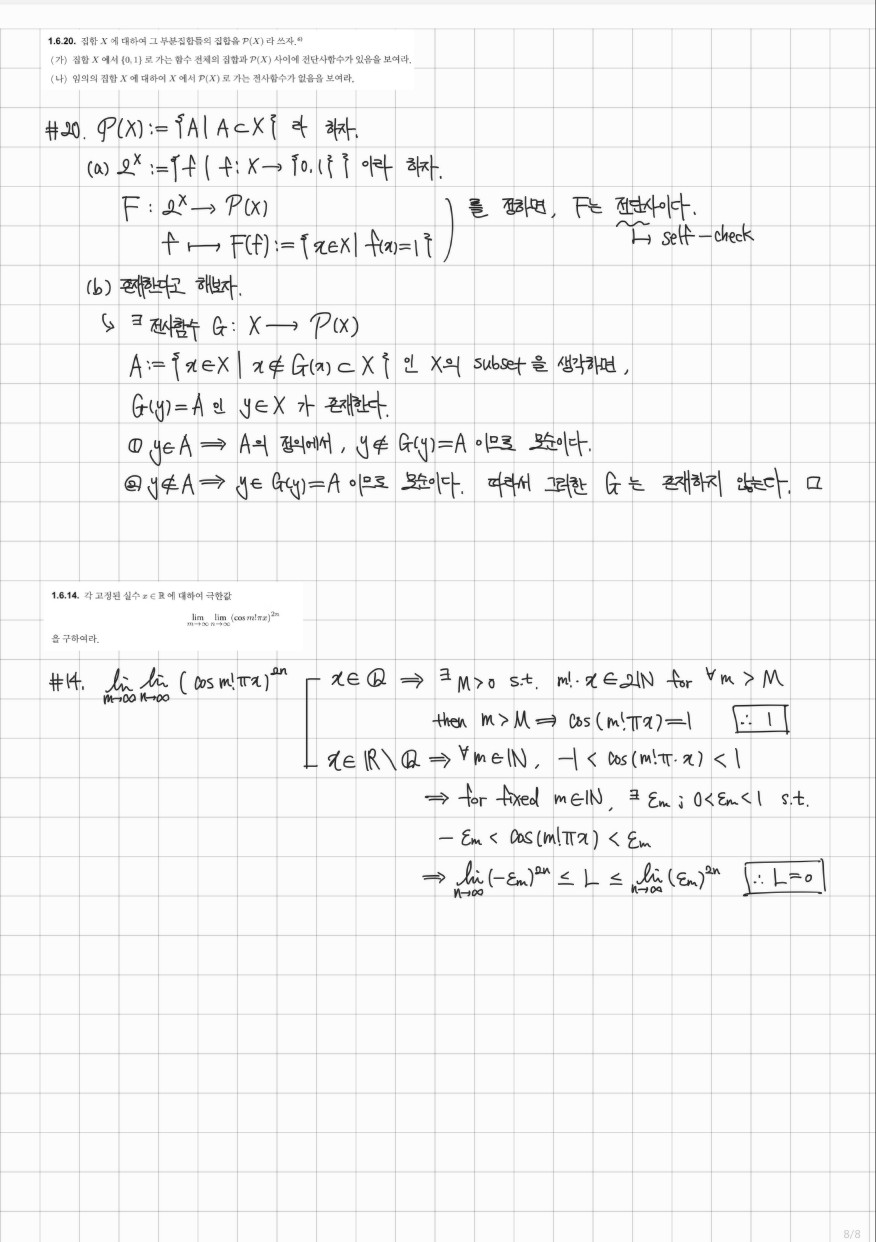 1.6.20. 집합 X 에 대하여 그 부분집합들의 집합을 𝒫(X) 라 쓰자.
(가) 집합 X 에서 {0, 1} 로 가는 함수 전체의 집합과 𝒫(X) 사이에 전단사함수가 있음을 보여라.
(나) 임의의 집합 X 에 대하여 X 에서 𝒫(X) 로 가는 전사함수가 없음을 보여라.
#20. 𝒫(X) := {A | A ⊂ X} 라 하자.
(a) 2^X := {f | f : X → {0, 1}} 이라 하자.
F : 2^X → 𝒫(X)
f ↦ F(f) := {x∈X | f(x)=1} ) 를 정하면, F는 전단사이다.
↳ self-check
(b) 존재한다고 해보자.
↳ ∃ 전사함수 G : X → 𝒫(X)
A := {x∈X | x∉G(x) ⊂ X} 인 X의 subset 을 생각하면,
G(y)=A 인 y∈X 가 존재한다.
① y∈A ⟹ A의 정의에서, y∉G(y)=A 이므로 모순이다.
② y∉A ⟹ y∈G(y)=A 이므로 모순이다. 따라서 그러한 G 는 존재하지 않는다. □
1.6.14. 각 고정된 실수 x ∈ ℝ 에 대하여 극한값
lim_{m→∞} lim_{n→∞} (cos m!πx)^{2n}
을 구하여라.
#14. lim_{m→∞} lim_{n→∞} (cos m!πx)^{2n} x∈ℚ ⇒ ∃ M>0 s.t. m!·x∈2ℕ for ∀m > M
then m>M ⟹ cos(m!πx)=1 ∴ 1
x∈ℝ\ℚ ⇒ ∀m∈ℕ, -1 < cos(m!π·x) < 1
⇒ for fixed m∈ℕ, ∃ ε_m ; 0<ε_m<1 s.t.
- ε_m < cos(m!πx) < ε_m
⇒ lim_{n→∞} (-ε_m)^{2n} ≤ L ≤ lim_{n→∞} (ε_m)^{2n} ∴ L=0
8/8